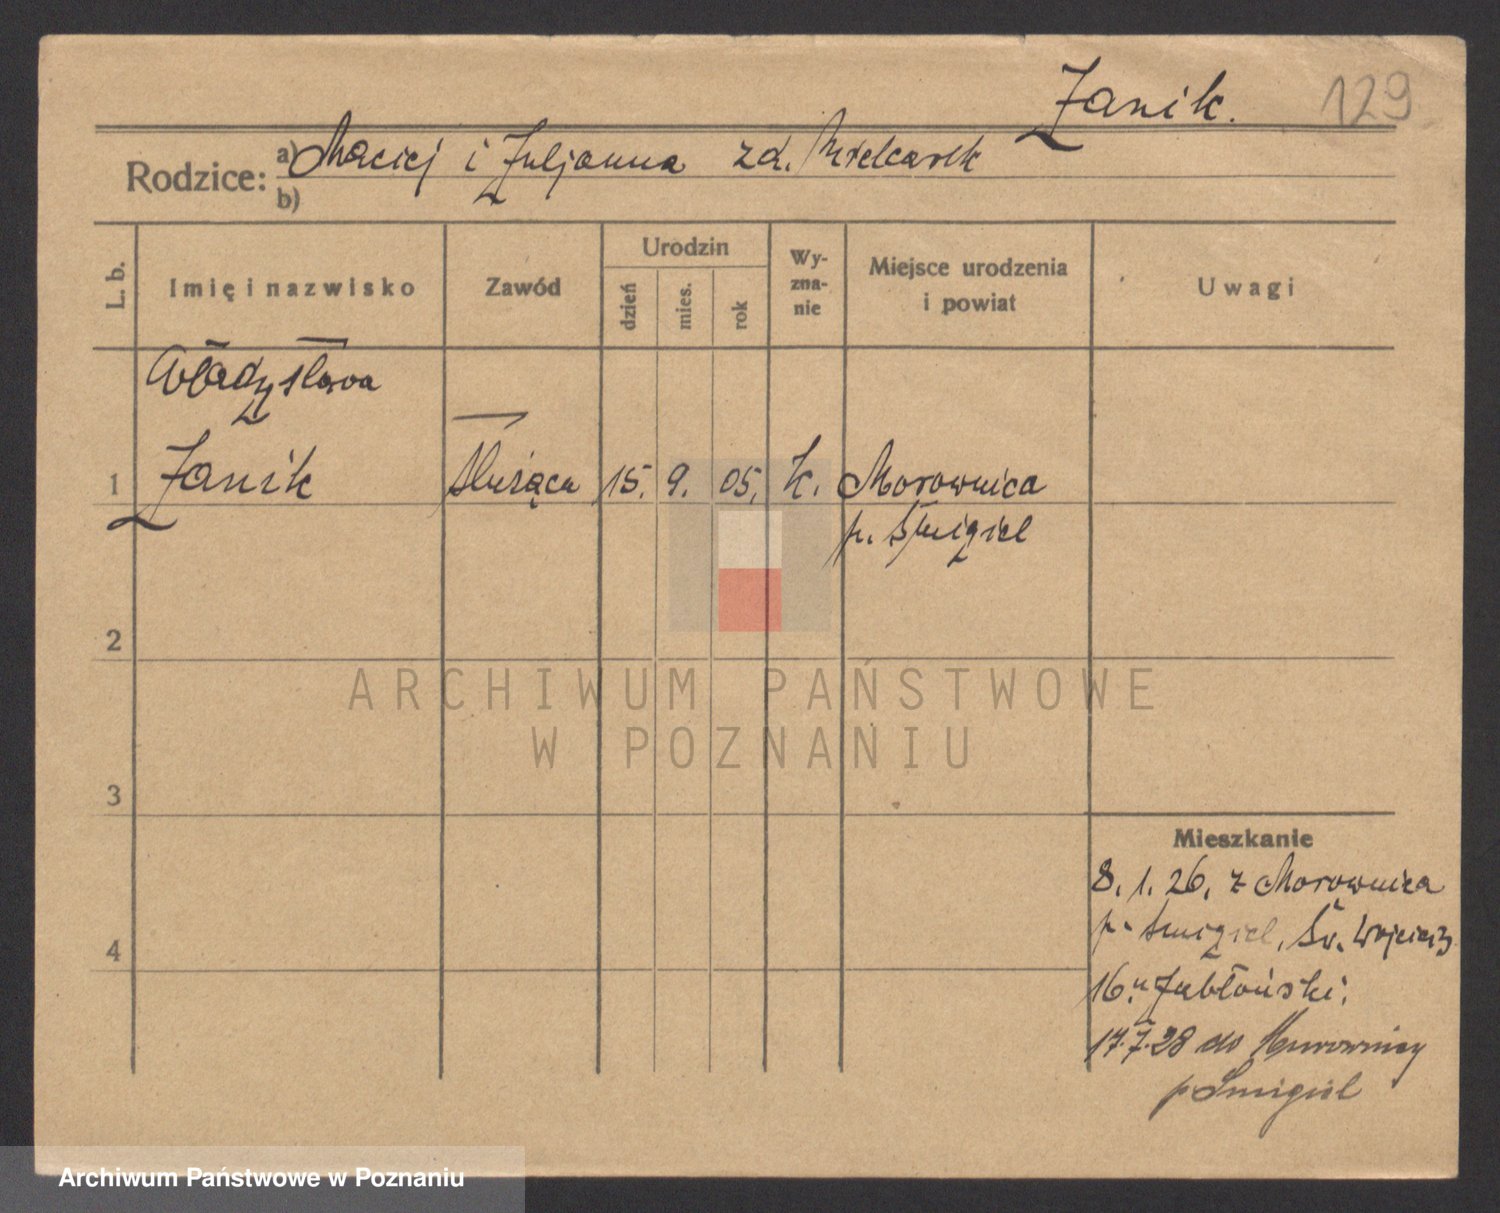 Janik. 129
Rodzice: a) Maciej i Juljanna zd. Mielcarek
b)
L. b. Imię i nazwisko Zawód Urodzin dzień mies. rok Wy-zna-nie Miejsce urodzenia i powiat Uwagi
Władysława
1 Janik służąca 15. 9. 05. k. Morownica
p. Śmigiel
2
ARCHIWUM PAŃSTWOWE
W POZNANIU
3
Mieszkanie
8. 1. 26. z Morownica
p. Śmigiel, Św. Wojciech
4
16. u Jabłoński.
17.7.28 do Murownicy
p Śmigiel
Archiwum Państwowe w Poznaniu